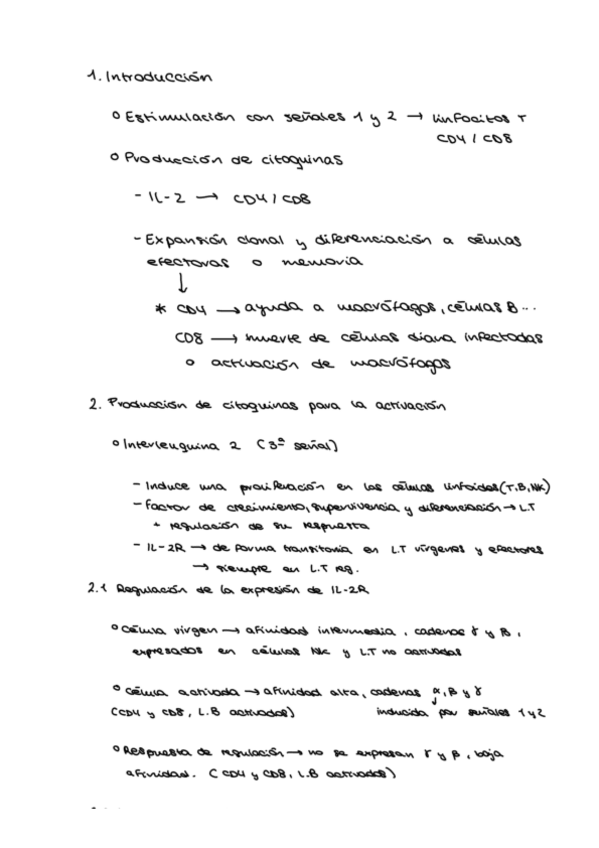 1. Introducción
o Estimulación con señales 1 y 2 → linfocitos T
CD4 / CD8
o Producción de citoquinas
- IL-2 → CD4 / CD8
- Expansión clonal y diferenciación a células
efectoras o memoria
↓
* CD4 → ayuda a macrófagos, células B...
CD8 → muerte de células diana infectadas
o activación de macrófagos
2. Producción de citoquinas para la activación
o Interleuquina 2 (3ª señal)
- Induce una proliferación en las células linfoides (T, B, NK)
- Factor de crecimiento, supervivencia y diferenciación → L.T
+ regulación de su respuesta
- IL-2R → de forma transitoria en L.T vírgenes y efectores
→ siempre en L.T reg.
2.1 Regulación de la expresión de IL-2R
o Célula virgen → afinidad intermedia, cadenas γ y β,
expresados en células NK y L.T no activadas
o Célula activada → afinidad alta, cadenas α, β y γ
(CD4 y CD8, L.B activados) inducida por señales 1 y 2
o Respuesta de regulación → no se expresan γ y β, baja
afinidad. (CD4 y CD8, L.B activados)